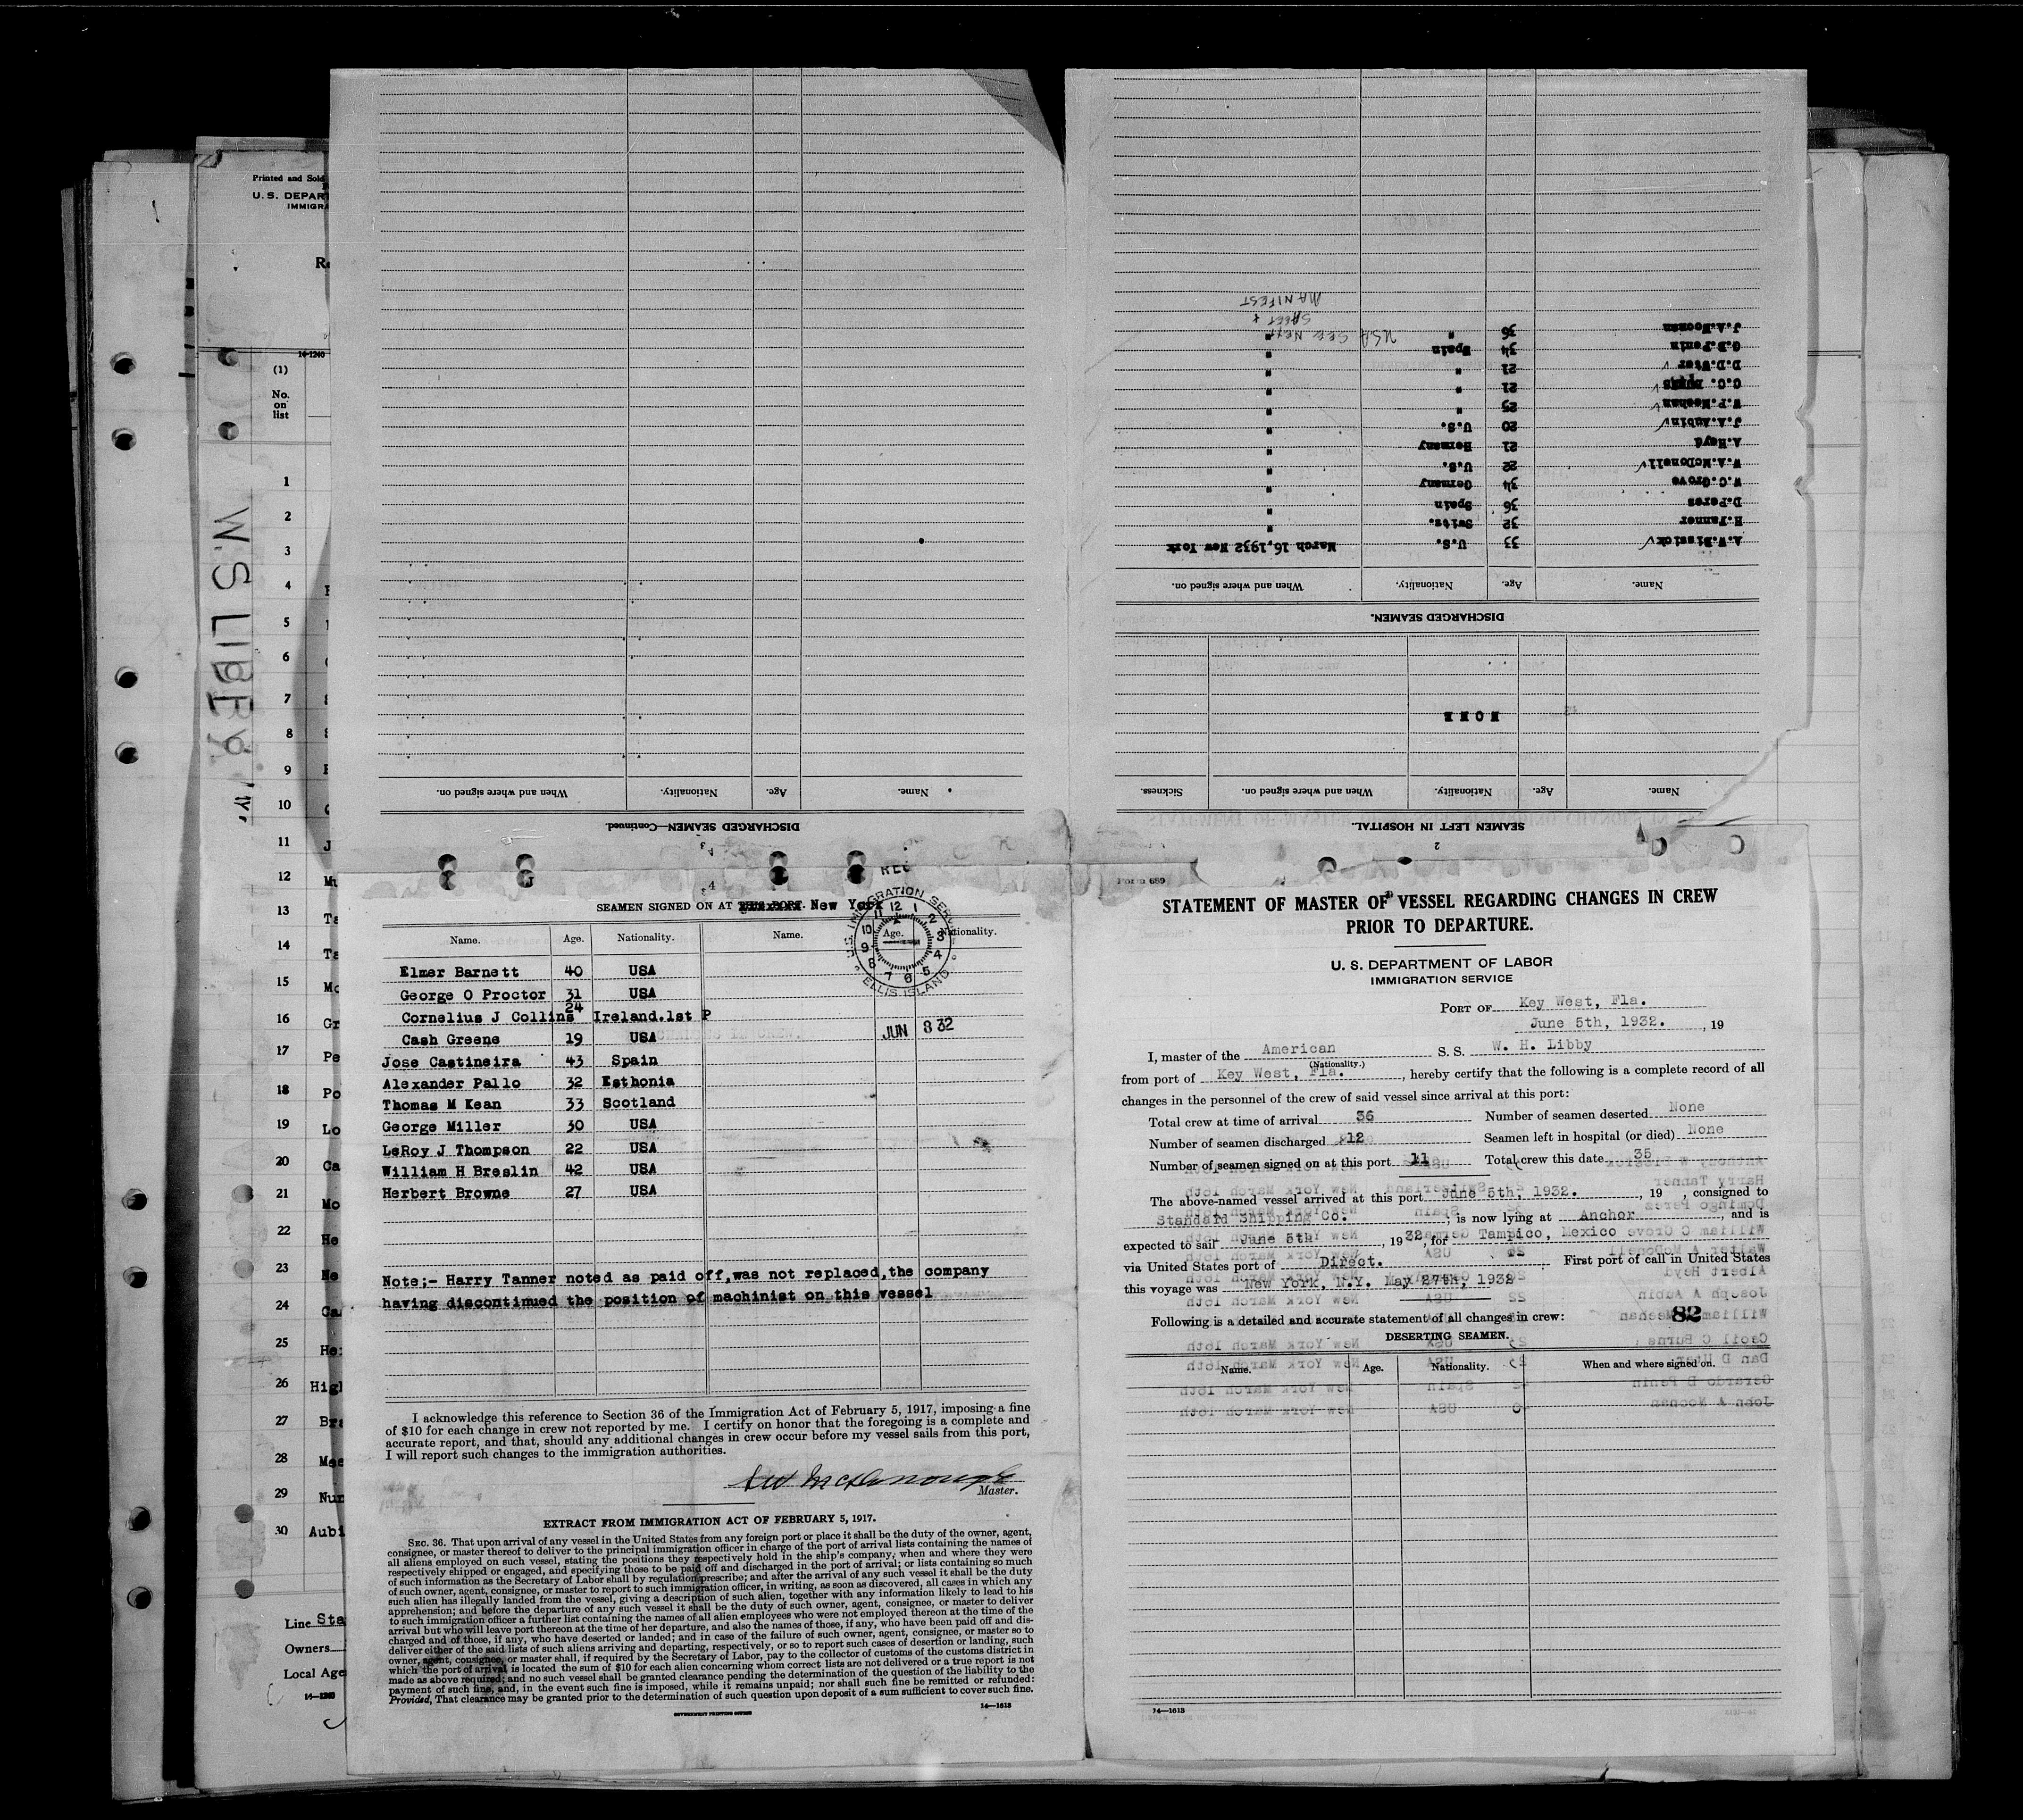 Printed and Sold
U. S. DEPAR
IMMIGRA
14-1240
(1)
No.
on
list
1
2
3
4
5
6
7
8
9
10
11
12
13
14
15
16
17
18
19
20
21
22
23
24
25
26
27
28
29
30
Mu
Ta
Ta
Mc
Gr
Pe
Po
Lo
Ca
Mo
He
Ne
Ga
He
High
Bra
Mee
Nun
Aubi
Line Sta
Owners
Local Age
14-1240
W. S LIBBY
DISCHARGED SEAMEN—Continued.
Name. Age. Nationality. When and where signed on.
2
SEAMEN LEFT IN HOSPITAL.
Name. Age. Nationality. When and where signed on. Sickness.
NONE
DISCHARGED SEAMEN.
Name. Age. Nationality. When and where signed on.
33 U.S. March 16, 1932 New York
H.Tanner 32 Switz. "
D.Perez 36 Spain "
W.C.Grove 34 Germany "
W.A.McDonell 22 U.S. "
A.Heyd 21 Germany "
J.A.Aubin 20 U.S. "
W.P.Meehan 25 " "
C.C. Burns 21 " "
D.D.Uter 21 " "
G.B.Penin 34 Spain "
J.A.Noonan 36 " "
USA SEE NEXT
SHEET +
MANIFEST
4
SEAMEN SIGNED ON AT New York
Name. Age. Nationality. Name. Age. Nationality.
Elmer Barnett 40 USA
George O Proctor 31 USA
Cornelius J Collins 24 Ireland.1st P
Cash Greene 19 USA
Jose Castineira 43 Spain
Alexander Pallo 32 Esthonia
Thomas M Kean 33 Scotland
George Miller 30 USA
LeRoy J Thompson 22 USA
William H Breslin 42 USA
Herbert Browne 27 USA
U.S. IMMIGRATION SERVICE
ELLIS ISLAND
12 1 2 3 4 5 6 7 8 9 10 11
JUN 8 32
Note;- Harry Tanner noted as paid off,was not replaced,the company
having discontinued the position of machinist on this vessel
I acknowledge this reference to Section 36 of the Immigration Act of February 5, 1917, imposing a fine
of $10 for each change in crew not reported by me. I certify on honor that the foregoing is a complete and
accurate report, and that, should any additional changes in crew occur before my vessel sails from this port,
I will report such changes to the immigration authorities.
Master.
EXTRACT FROM IMMIGRATION ACT OF FEBRUARY 5, 1917.
SEC. 36. That upon arrival of any vessel in the United States from any foreign port or place it shall be the duty of the owner, agent,
consignee, or master thereof to deliver to the principal immigration officer in charge of the port of arrival lists containing the names of
all aliens employed on such vessel, stating the positions they respectively hold in the ship's company, when and where they were
respectively shipped or engaged, and specifying those to be paid off and discharged in the port of arrival; or lists containing so much
of such information as the Secretary of Labor shall by regulation prescribe; and after the arrival of any such vessel it shall be the duty
of such owner, agent, consignee, or master to report to such immigration officer, in writing, as soon as discovered, all cases in which any
such alien has illegally landed from the vessel, giving a description of such alien, together with any information likely to lead to his
apprehension; and before the departure of any such vessel it shall be the duty of such owner, agent, consignee, or master to deliver
to such immigration officer a further list containing the names of all alien employees who were not employed thereon at the time of the
arrival but who will leave port thereon at the time of her departure, and also the names of those, if any, who have been paid off and dis-
charged and of those, if any, who have deserted or landed; and in case of the failure of such owner, agent, consignee, or master so to
deliver either of the said lists of such aliens arriving and departing, respectively, or so to report such cases of desertion or landing, such
owner, agent, consignee, or master shall, if required by the Secretary of Labor, pay to the collector of customs of the customs district in
which the port of arrival is located the sum of $10 for each alien concerning whom correct lists are not delivered or a true report is not
made as above required; and no such vessel shall be granted clearance pending the determination of the question of the liability to the
payment of such fine, and, in the event such fine is imposed, while it remains unpaid; nor shall such fine be remitted or refunded:
Provided, That clearance may be granted prior to the determination of such question upon deposit of a sum sufficient to cover such fine.
14—1613
GOVERNMENT PRINTING OFFICE
Form 689
STATEMENT OF MASTER OF VESSEL REGARDING CHANGES IN CREW
PRIOR TO DEPARTURE.
U. S. DEPARTMENT OF LABOR
IMMIGRATION SERVICE
PORT OF Key West, Fla.
June 5th, 1932. , 19
I, master of the American S. S. W. H. Libby
(Nationality.)
from port of Key West, Fla. , hereby certify that the following is a complete record of all
changes in the personnel of the crew of said vessel since arrival at this port:
Total crew at time of arrival 36 Number of seamen deserted None
Number of seamen discharged 12 Seamen left in hospital (or died) None
Number of seamen signed on at this port 11 Total crew this date 35
The above-named vessel arrived at this port June 5th, 1932. , 19 , consigned to
Standard Shipping Co. ; is now lying at Anchor , and is
expected to sail June 5th , 1932, for Tampico, Mexico
via United States port of Direct. First port of call in United States
this voyage was New York, N.Y. May 27th, 1932
Following is a detailed and accurate statement of all changes in crew: 82
DESERTING SEAMEN.
Name. Age. Nationality. When and where signed on.
14—1613